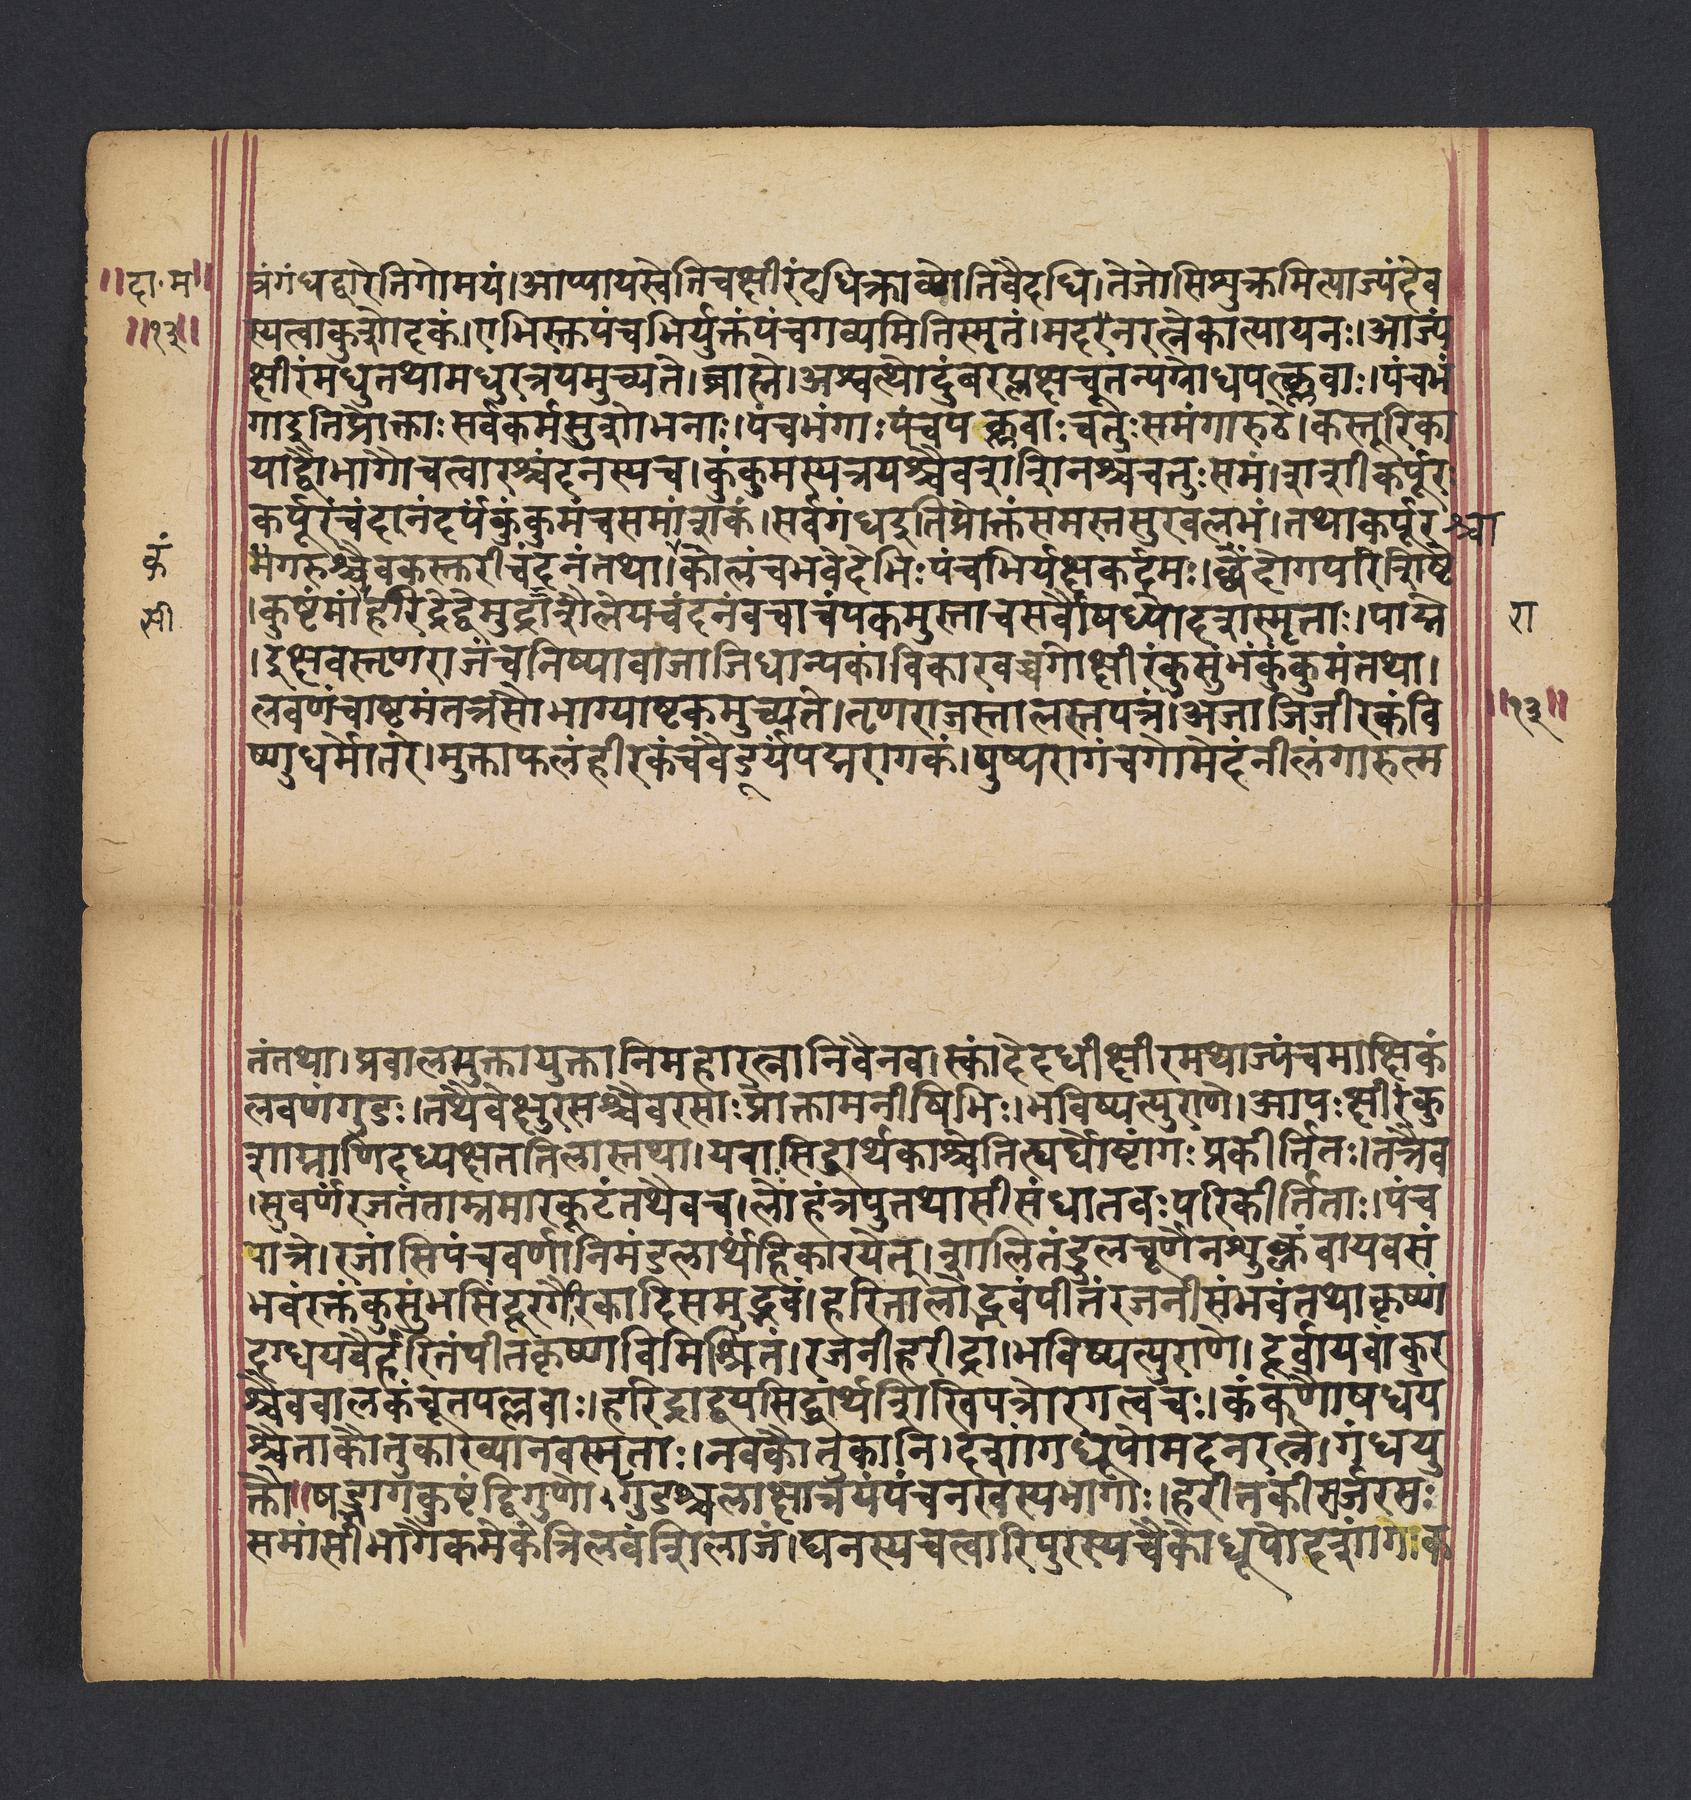 ॥दा.म॥
॥१३॥
त्रंगंधद्वारेतिगोमयं।आप्यायस्वेतिचक्षीरंदधिक्राव्णोतिवैदधि।तेजोसिशुक्रमित्याज्यंदेव
स्यत्वाकुशोदकं।एभिस्तपंचभिर्युक्तंपंचगव्यमितिस्मृतं।मदनरत्नेकात्यायनः।आज्यं
क्षीरंमधुतथामधुरत्रयमुच्यते।ब्राह्मे।अश्वत्थोदुंबरप्लक्षचूतन्यग्रोधपल्लवाः।पंचभं
गाइतिप्रोक्ताःसर्वकर्मसुशोभनाः।पंचभंगाःपंचपल्लवाःचतुःसमंगारुडे।कस्तूरिका
याद्वौभागौचत्वारश्चंदनस्यच।कुंकुमस्यत्रयश्चैवशशिनश्चचतुःसमं।शशीकर्पूरः
कर्पूरंचंदनंदर्पंकुंकुमंचसमांशकं।सर्वगंधइतिप्रोक्तंसमस्तसुरवलभं।तथाकर्पूर
श्चा
कं
मगरुश्चैवकस्तरीचंदनंतथा।कोलंचभवेदेभिःपंचभिर्यक्षकर्दमः।छंदोगपरिशिष्टे
सी
।कुष्टंमांहरिद्रेद्वेमुद्राशैलेयचंदनंवचाचंपकमुस्ताचसर्वौषध्योदशस्मृताः।पाद्मे
रा
।इक्षवस्तृणराजंचनिष्पावाजाजिधान्यकाविकारवच्चगोक्षीरंकुसुंभंकुंकुमंतथा।
लवणंचाष्टमंतत्रसौभाग्याष्टकमुच्यते।तृणराजस्तालस्तपत्रं।अजाजिजीरकंवि
॥१३॥
ष्णुधर्मोत्तरे।मुक्ताफलंहीरकंचवैडूर्यंपद्मरागकं।पुष्परागंचगोमेदंनीलंगारुत्म
तंतथा।प्रवालमुक्तायुक्तानिमहारत्नानिवैनव।स्कांदेदधीक्षीरमथाज्यंचमाक्षिकं
लवणंगुडः।तथैवेक्षुरसश्चैवरसाःप्रोक्तामनीषिभिः।भविष्यत्पुराणे।आपःक्षीरंकु
शाग्राणिदध्यक्षततिलास्तथा।यवासिद्धार्थकाश्चेतित्घर्घोष्टांगःप्रकीर्त्तितः।तत्रैव
।सुवर्णंरजतंताम्रमारकूटंतथैवच।लोहंत्रपुतथासीसंधातवःपरिकीर्त्तिताः।पंच
रात्रे।रजांसिपंचवर्णानिमंडलार्थंहिकारयेत्।शालितंडुलचूर्णेनशुक्लंवायवसं
भवंरक्तंकुसुंभसिंदूरगैरिकादिसमुद्भवं।हरितालोद्भवंपीतंरजनीसंभवंतथाकृष्णं
दग्धयवैर्हरितंपीतकृष्णविमिश्रितं।रजनीहरीद्रा।भविष्यत्पुराणे।दूर्वायवांकुर
श्चैववालकंचूतपल्लवाः।हरिद्राद्वयसिद्धार्थशिखिपत्रोरगत्वचः।कंकणौषधय
श्चैताकौतुकाख्यानवस्मृताः।नवकौतुकानि।दशांगधूपोमदनरत्ने।गंधयु
क्तौ॥षड्भागकुष्टंद्विगुणो।गुडश्चलाक्षात्रयंपंचनखस्यभागाः।हरीतकीसर्जरसः
समांसीभागैकमेकंत्रिलवंशिलाजं।घनस्यचत्वारिपुरस्यचैकोधूपोदशांगःक